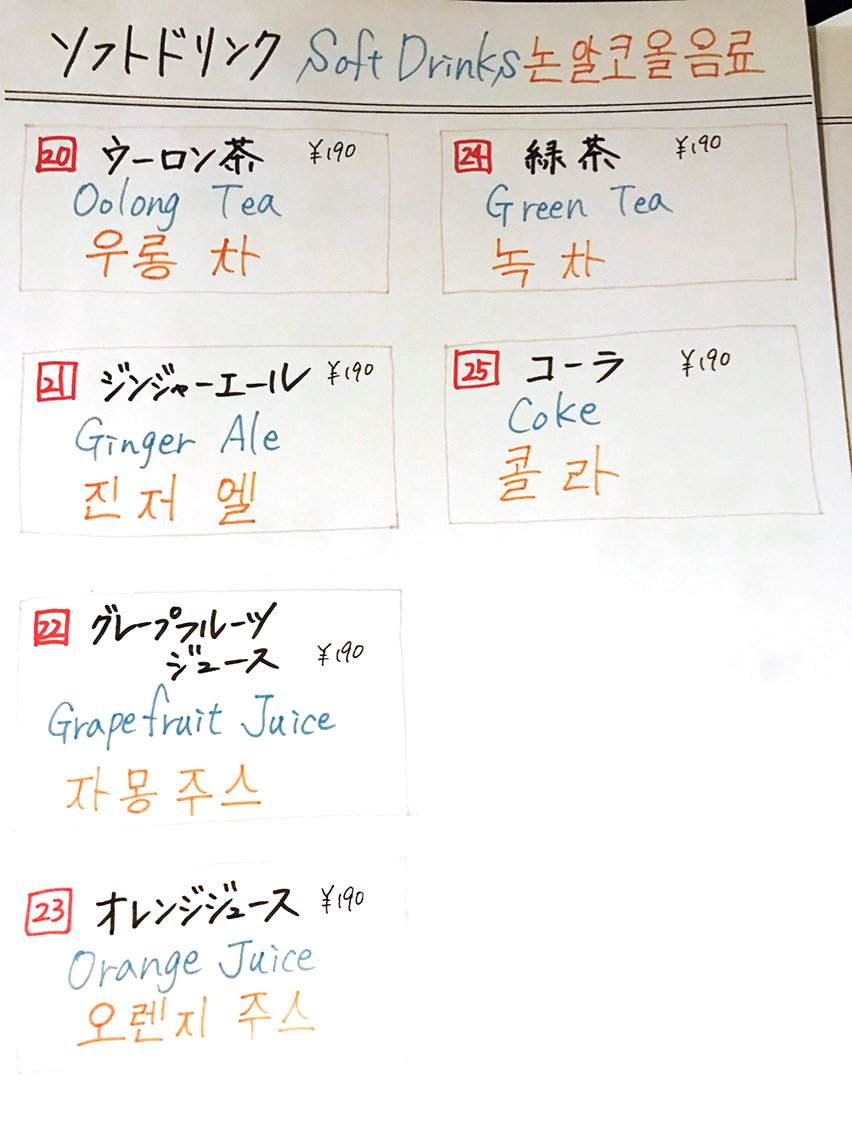 ソフトドリンク Soft Drinks 논알코올음료
20 ウーロン茶 ¥190
Oolong Tea
우롱 차
21 ジンジャーエール ¥190
Ginger Ale
진저 엘
22 グレープフルーツ
ジュース ¥190
Grapefruit Juice
자몽주스
23 オレンジジュース ¥190
Orange Juice
오렌지 주스
24 緑茶 ¥190
Green Tea
녹차
25 コーラ ¥190
Coke
콜라